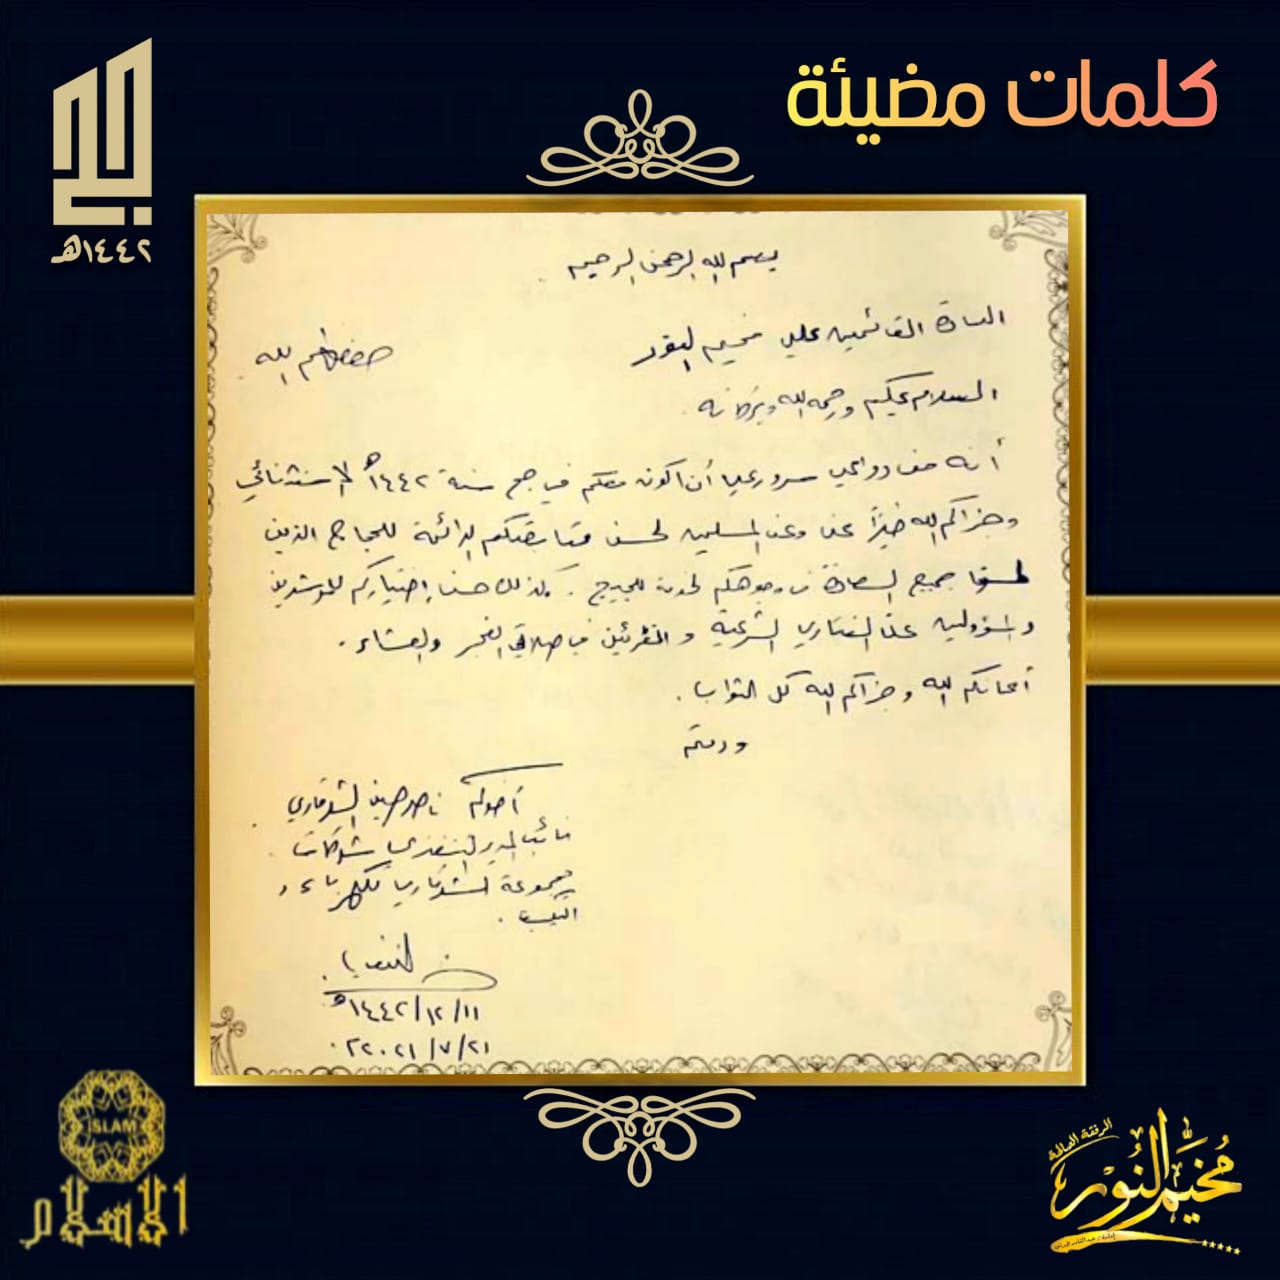 كلمات مضيئة
١٤٤٢هـ
بسم الله الرحمن الرحيم
السادة القائمين على مخيم النور
حفظهم الله
السلام عليكم ورحمة الله وبركاته
أنه من دواعي سروري أن أكون معكم في حج سنة ١٤٤٢هـ الاستثنائي
وجزاكم الله خيراً عنا وعن المسلمين لحسن متابعتكم الدائمة للحجاج الذين
جميع السعادة في وجوهكم لخدمة الحجيج. وكذلك حسن إختياركم للمرشدين
والمسؤولين عن الفتاوي الشرعية و المقرئين في صلاتي الفجر والعشاء.
أعانكم الله وجزاكم الله كل الثواب.
ودمتم
أخوكم ناصر حسين
نائب المدير التنفيذي
مجموعة للكهرباء و
١٤٤٢/١٢/١١هـ
٢٠٢١/٧/٢١
ISLAM
الإسلام
الرفقة الصالحة
مخيم النور